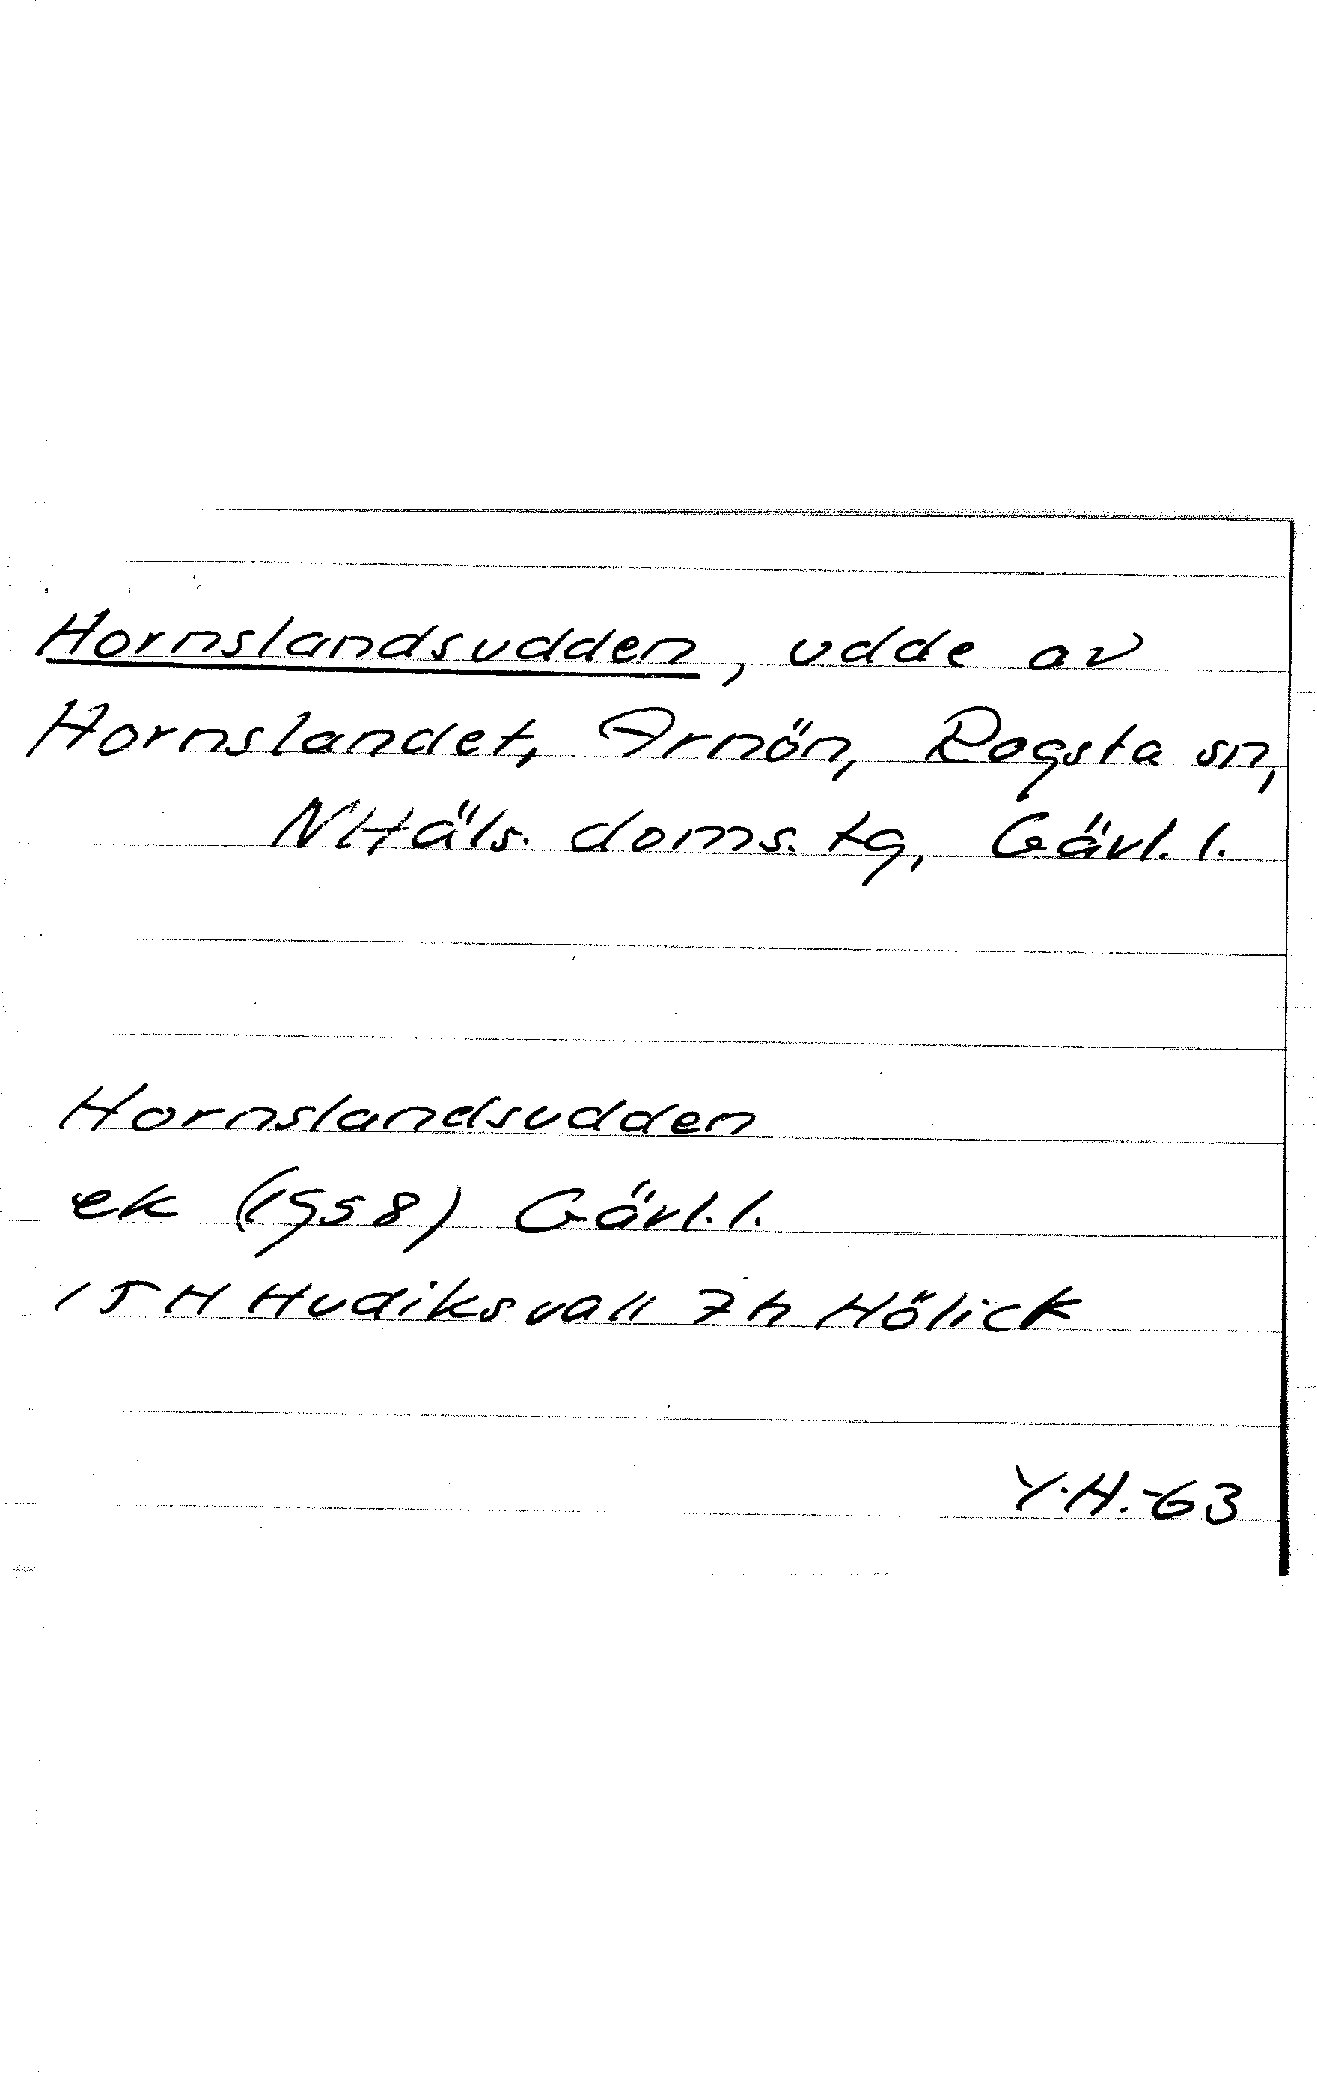 Hornslandsudden, udde av
Hornslandet, Arnön, Rogsta sn,
NHäls. doms. tg, Gävl. l.
Hornslandsudden
ek (1958) Gävl. l.
15H Hudiksvall 7h Hölick
Y.H.-63